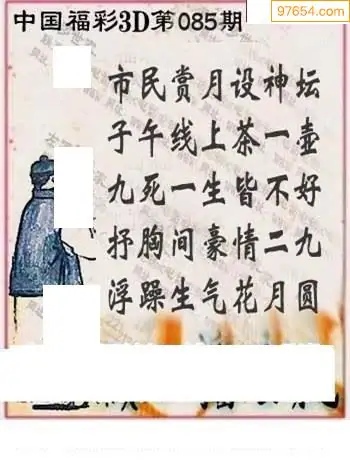 97654.com
中国福彩3D第085期
市民赏月设神坛
子午线上茶一壶
九死一生皆不好
抒胸间豪情二九
浮躁生气花月圆